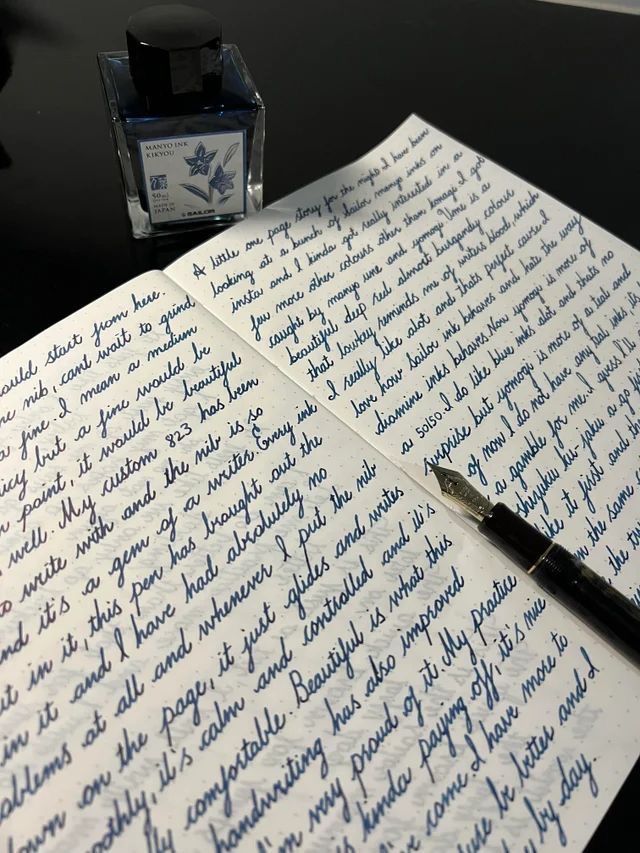 MANYO INK
KIKYOU
50ml
MADE IN
JAPAN
SAILOR
ould start from here.
ne nib, cant wait to grind
a fine. I mean a medium
icy but a fine would be
n point, it would be beautiful
well. My custom 823 has been
to write with and the nib is so
nd it's a gem of a writer. Every ink
ut in it, this pen has brought out the
in it and I have had absolutely no
oblems at all and whenever I put the nib
own on the page, it just glides and writes
oothly, it's calm and controlled and it's
lly comfortable. Beautiful is what this
handwriting has also improved
I'm very proud of it. My practice
is kinda paying off, it's nice
I've come. I have more to
use be better and I
by day.
A little one page story for the night I have been
looking at a bunch of Sailor manyo inks on
instas and I kinda got really interested in a
few more other colours other than konagi I got
caught by manyo ume and yomogi. Ume is a
beautiful deep red almost burgundy colour
that lowkey reminds me of writers blood, which
I really like alot and thats perfect cause I
love how Sailor ink behaves and hate the way
diamine inks behave. Now yomogi is more of
a 50/50. I do like blue inks alot and thats no
surprise but yomogi is more of a teal and
of now I do not have any teal inks it's
a gamble for me. I guess I'll
shizuku tsu-yaku a go
like it first and th
n the same
the tr